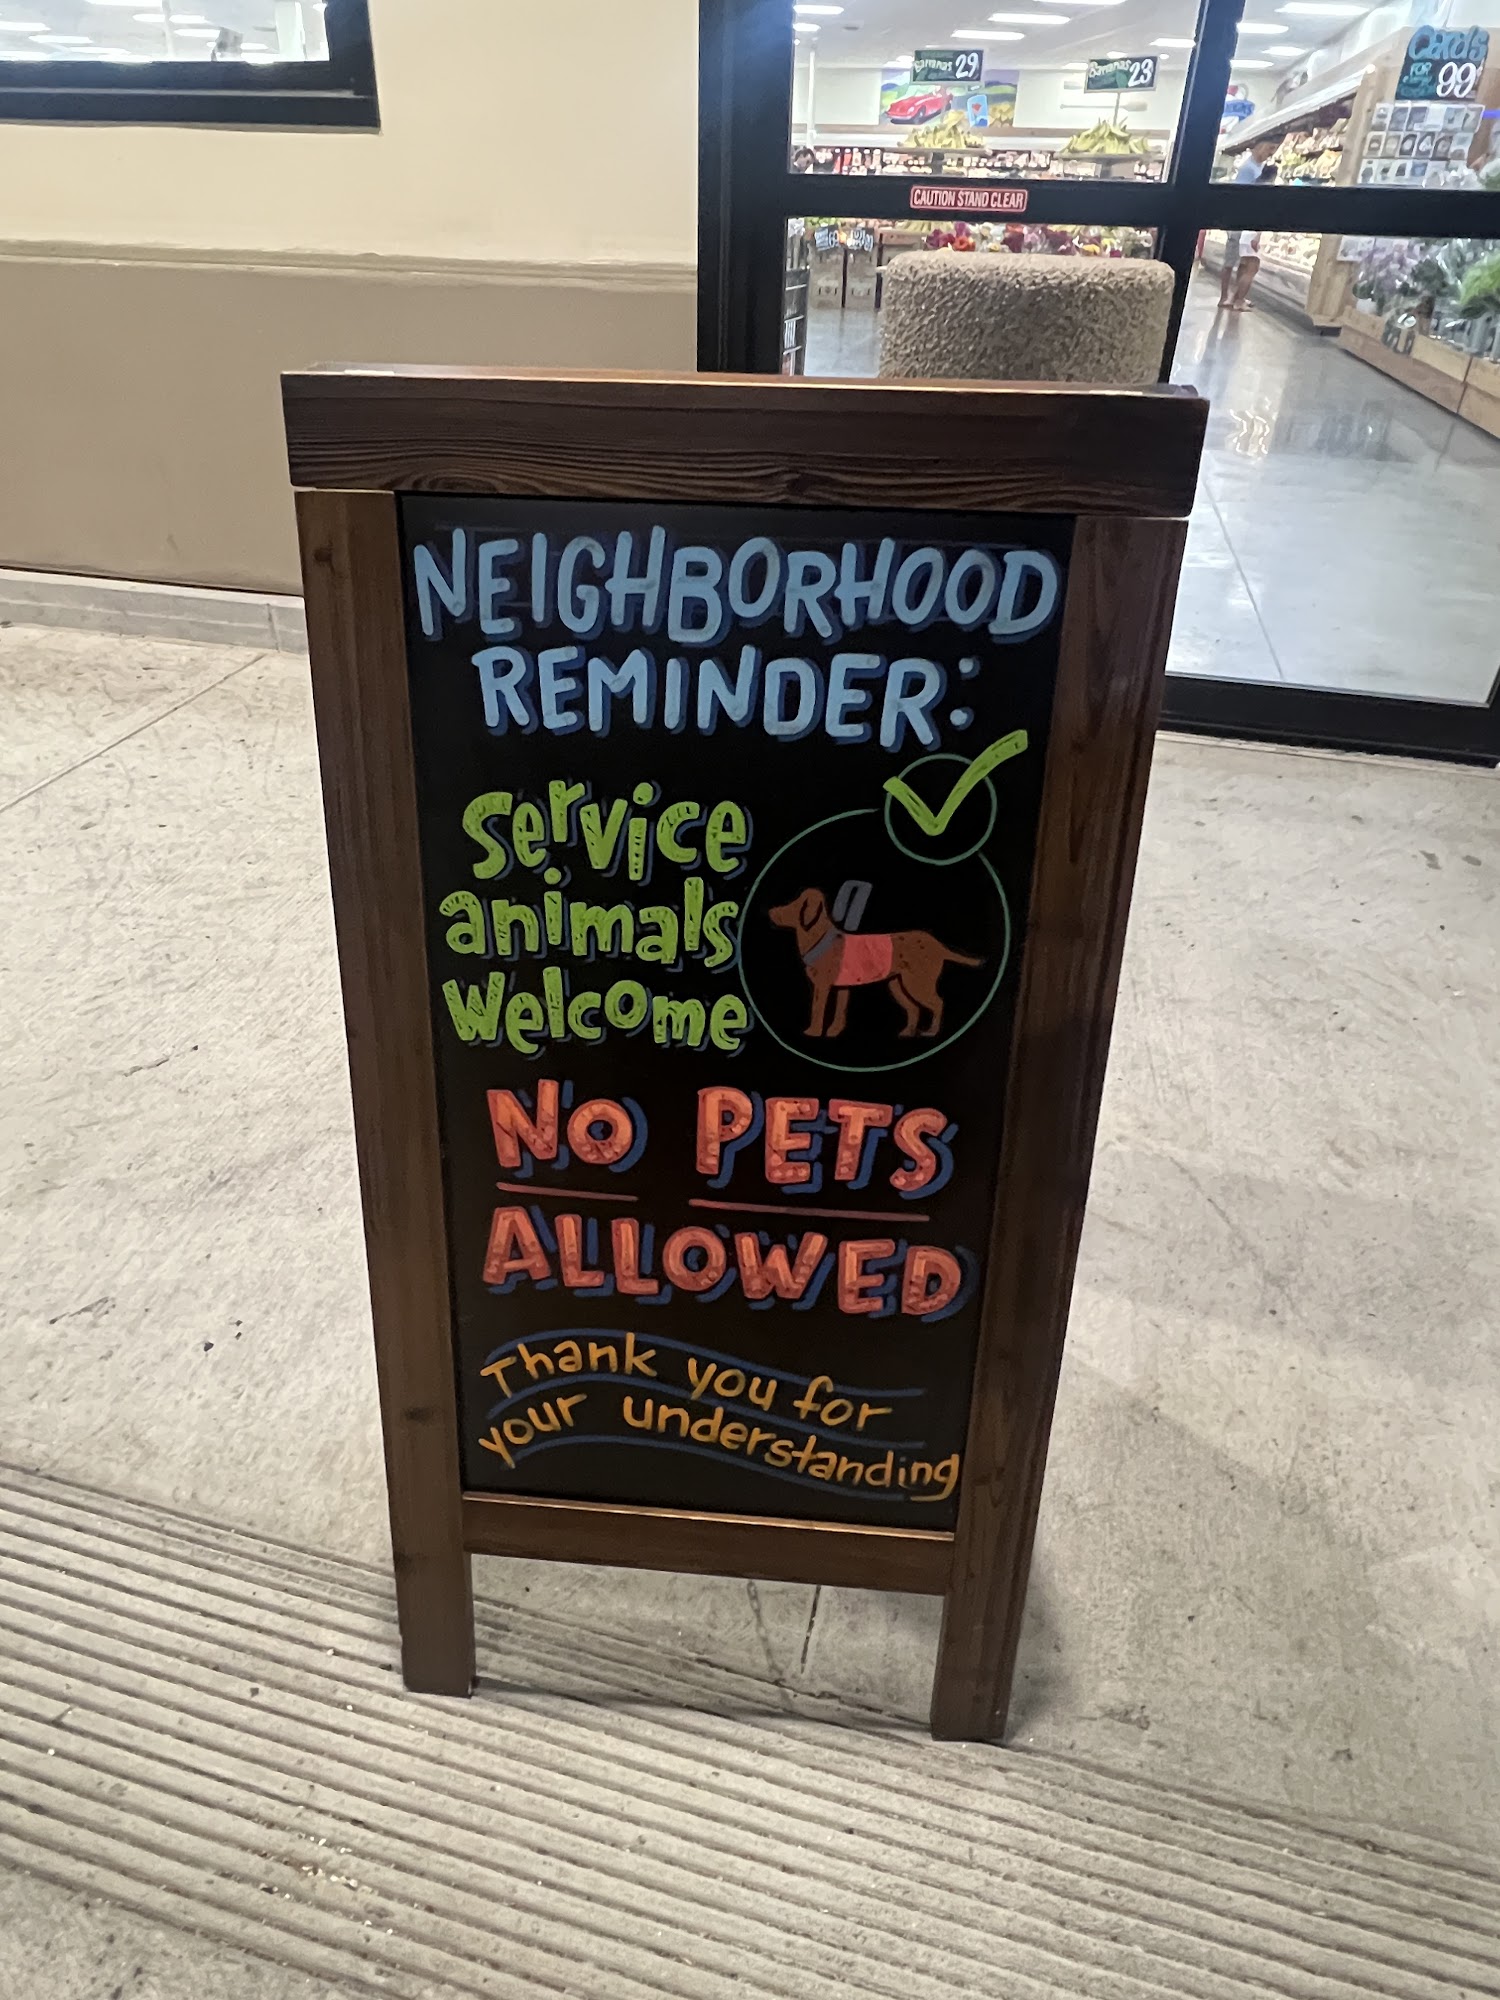 Bananas 29
Bananas 23
Cards
FOR
99¢
CAUTION STAND CLEAR
NEIGHBORHOOD
REMINDER:
Service
animals
Welcome
NO PETS
ALLOWED
Thank you for
your understanding